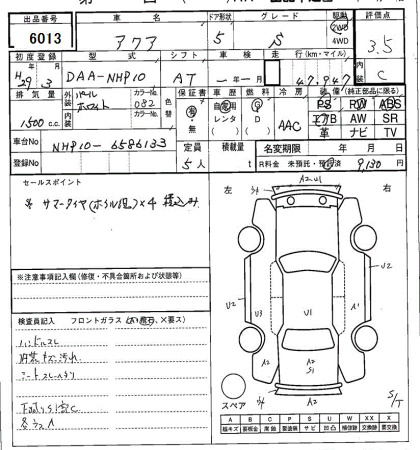 出品番号 車名 ドア形状 グレード 駆動 評価点
6013 アクア 5 S 2WD 4WD 3.5
初度登録 型式 シフト 車検 走行(km・マイル) 内装
H29.3 DAA-NHP10 AT 一年一月 47,947 C
排気量 外装 パール ホワイト カラーNo. 082 色替 保証書 車歴 燃料 冷房 装備(純正部品に限る)
内装 カラーNo. 有・無 自家用 レンタ G D AAC PS RW ABS
1500c.c. エアB AW SR
革 ナビ TV
車台No NHP10-6586133 定員 積載量 名変期限 年 月 日
登録No 5人 t R料金 未預託・預託済 9,130円
セールスポイント
サマータイヤ(ホイル組)×4 積込み
左 右
A2 U1
U2 U3 U1 A1 U2
A2 A2 S1 A2
A2
スペア S/T
※注意事項記入欄(修復・不具合箇所および状態等)
検査員記入 フロントガラス(飛石、×要ス)
ハンドルスレ
内装キズ汚れ
シートスレ
下廻りS1
各ラスA
A B C P S U W X XX
線キズ 要板金 腐蝕 要塗装 サビ 凹凸 補修跡 交換跡 要交換